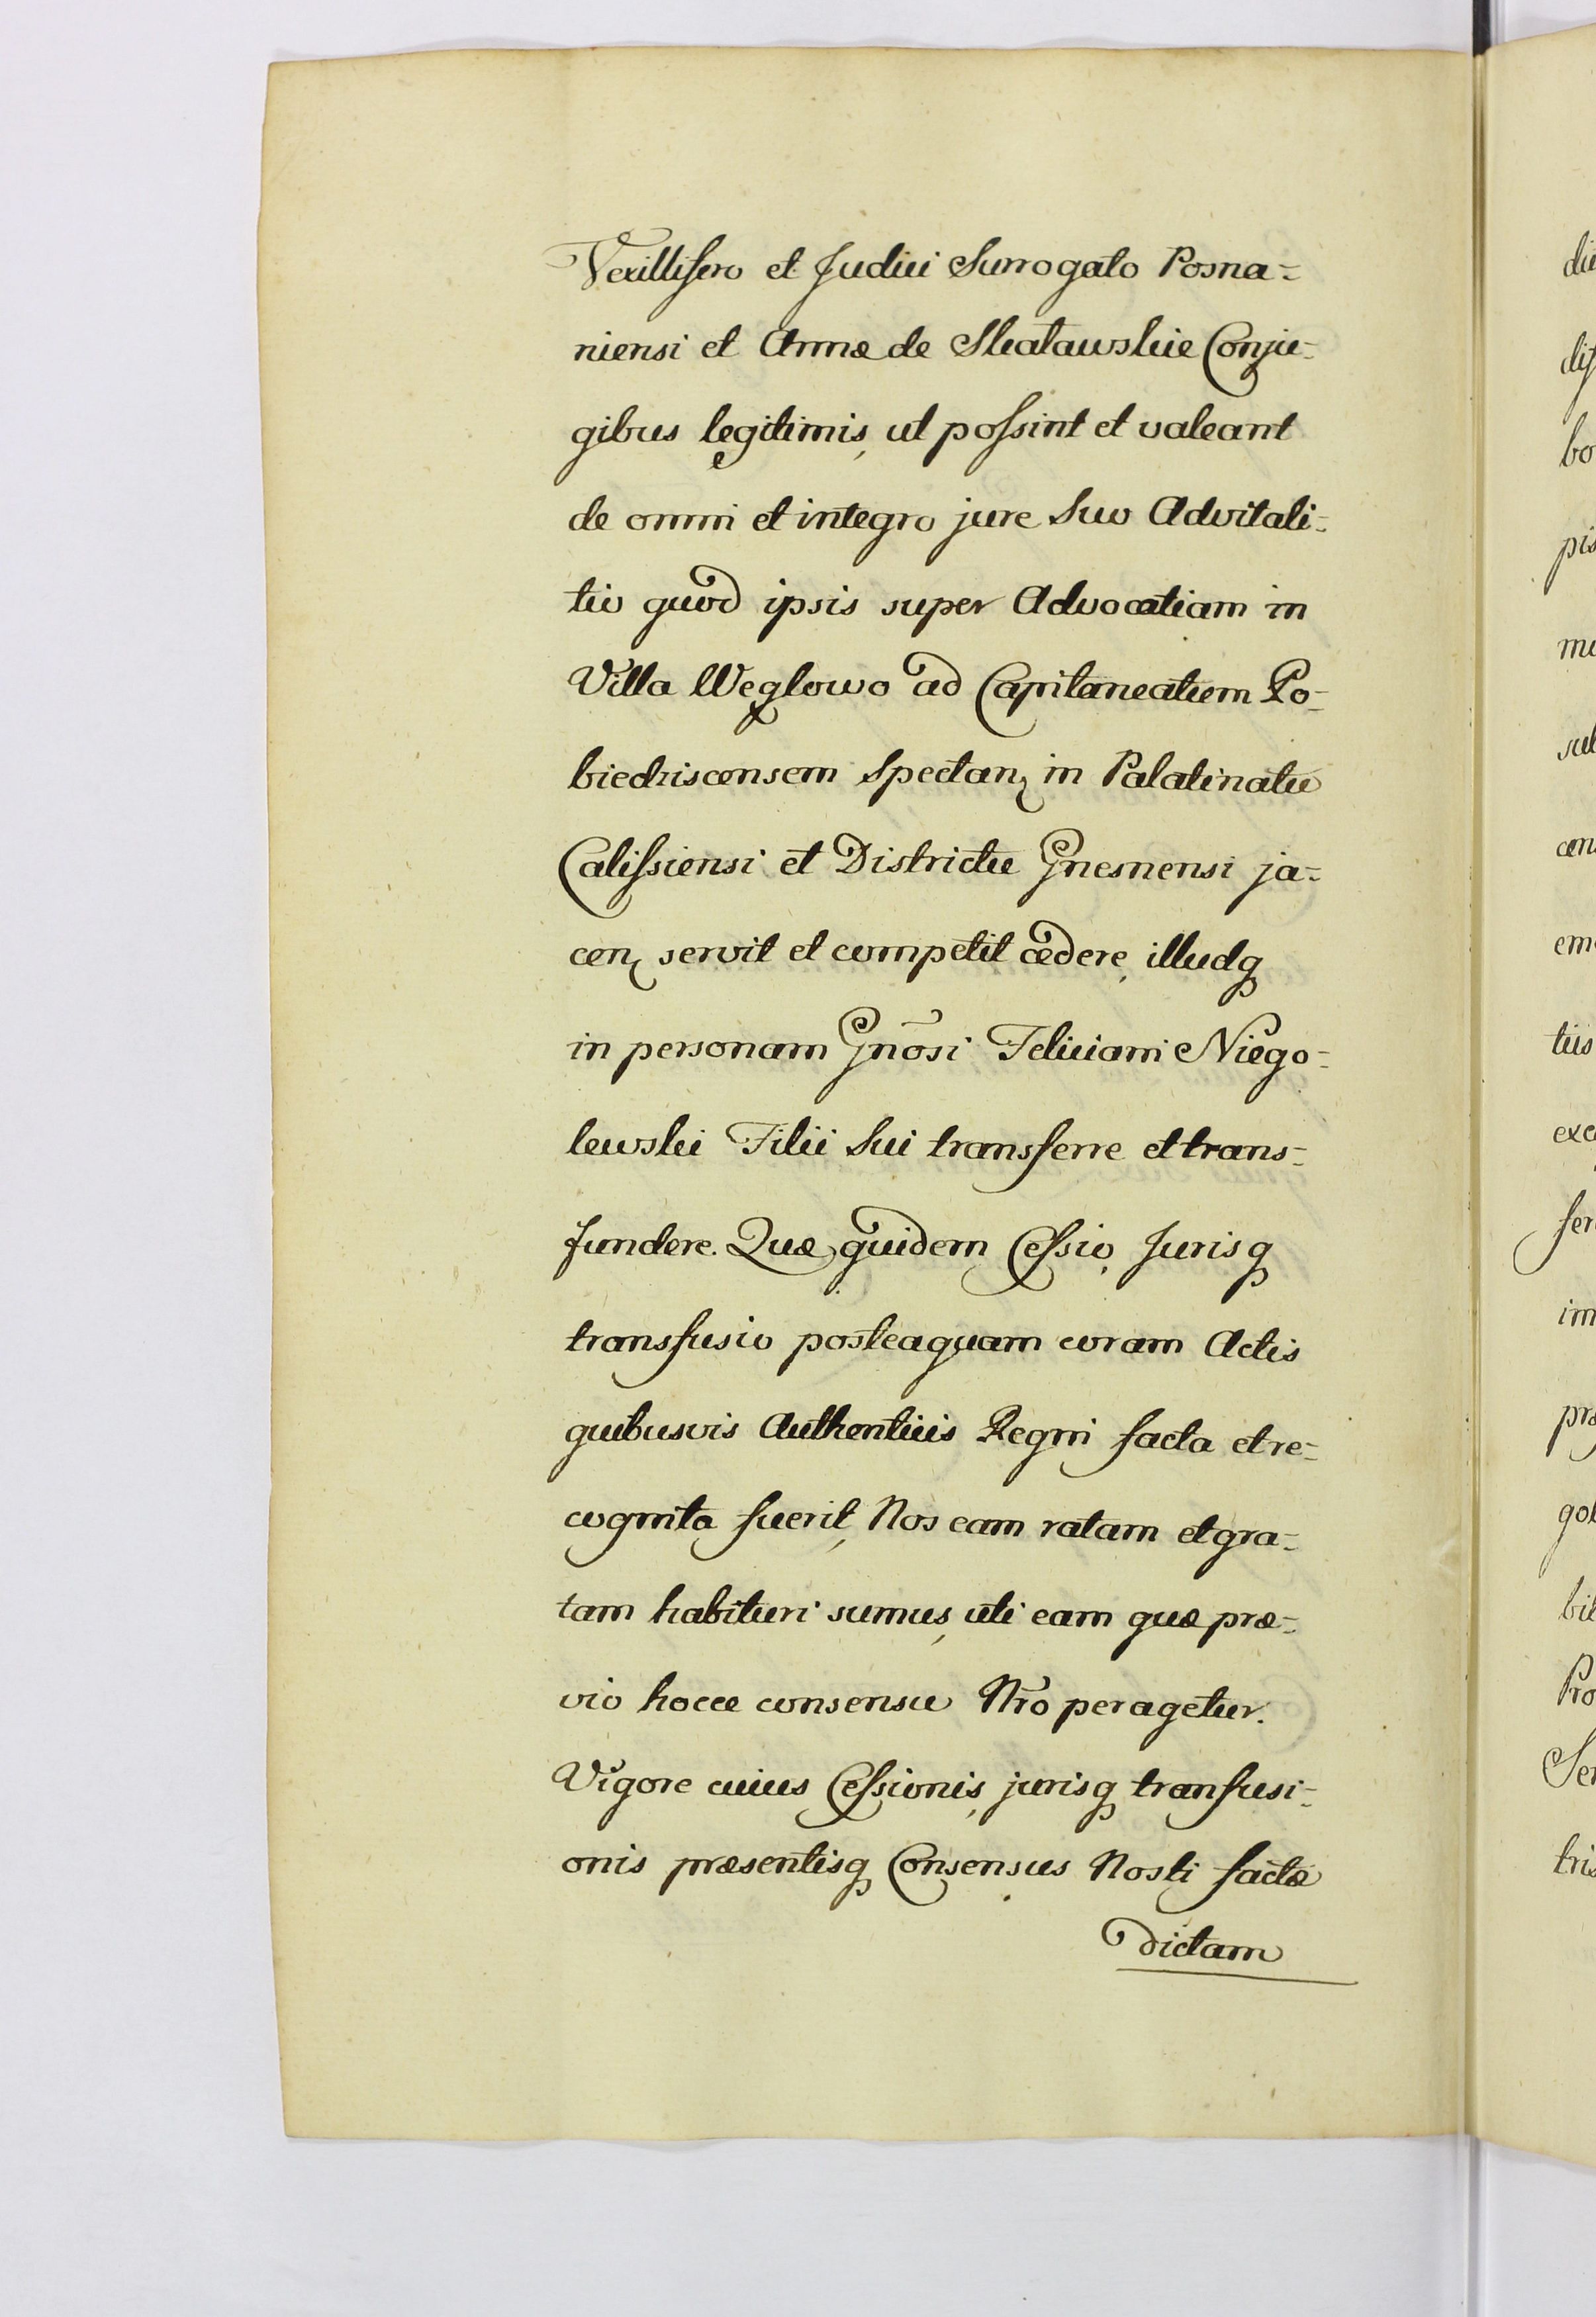 Vexillifero et Judici Surrogato Posna=
niensi et Annæ de Skaławskie Conju=
gibus legitimis, ut poſsint et valeant
de omni et integro jure suo Advitali=
tio quod ipsis super Advocatiam in
Villa Węglowo ad Capitaneatum Po=
biedziscensem spectan, in Palatinatu
Caliſsiensi et Districtu Gnesnensi ja=
cen, servit et competit cædere, illudq
in personam Gnosi Feliciani Niego=
lewski Filii Sui transferre et trans=
fundere. Quæ quidem Ceſsio, Jurisq
transfusio posteaquam coram Actis
quibusvis Authenticis Regni facta et re=
cognita fuerit, Nos eam ratam et gra=
tam habituri sumus, uti eam quæ præ=
vio hocce consensu Nro peragetur.
Vigore cuius Ceſsionis, jurisq tranfusi=
onis præsentisq Consensus Nosti factæ
dictam